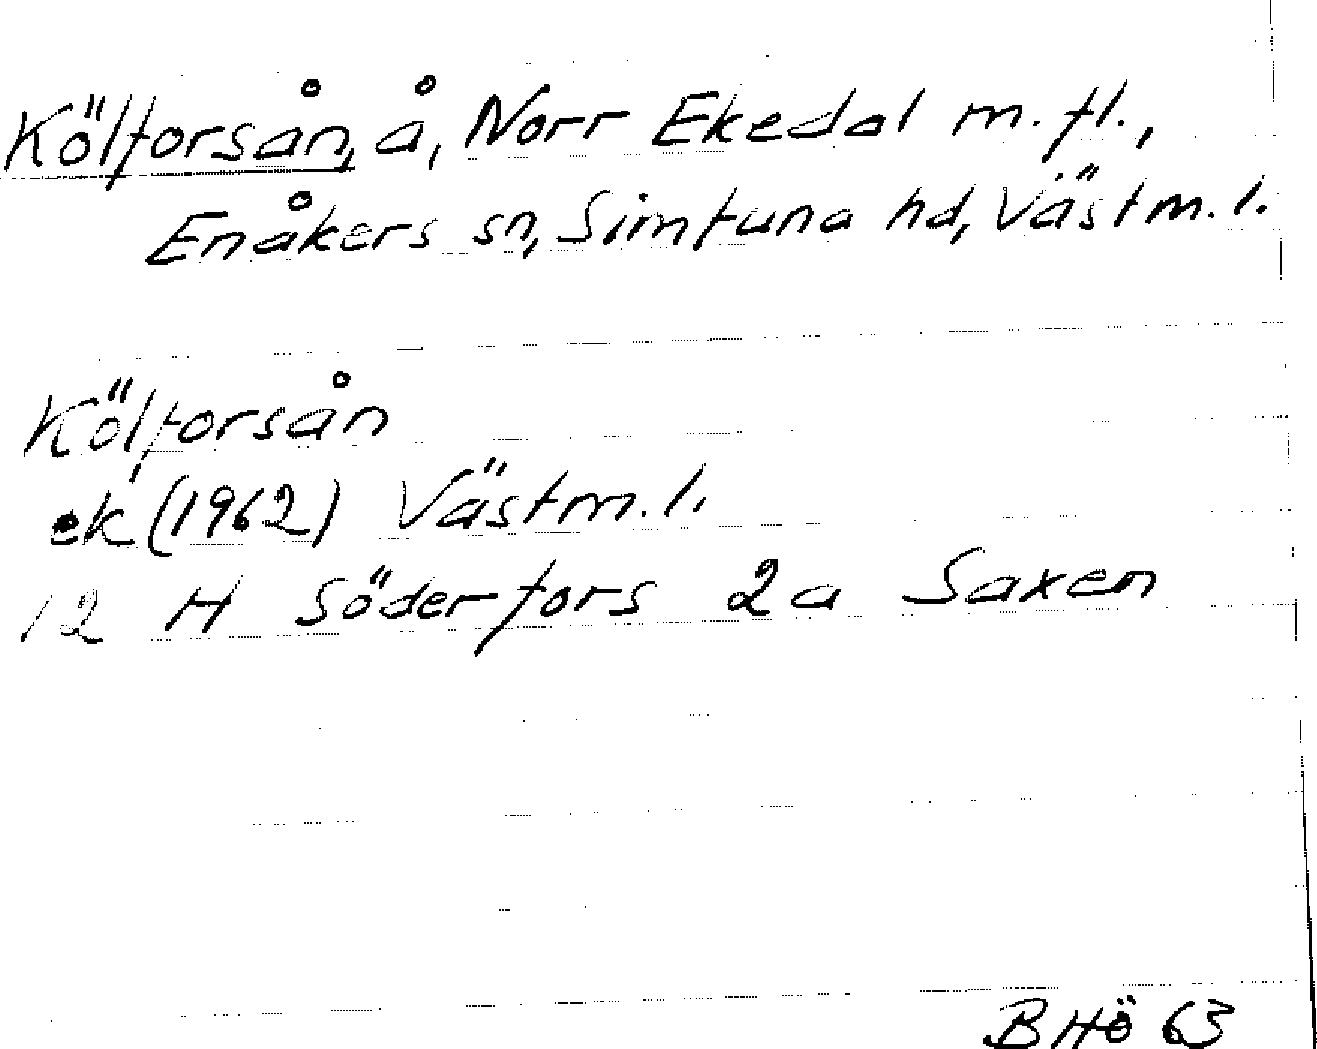 Kölforsån, å, Norr Ekedal m.fl.,
Enåkers sn, Simtuna hd, Västm.l.
Kölforsån
ek (1962) Västm.l.
12 H Söderfors 2a Saxen
BHö 63